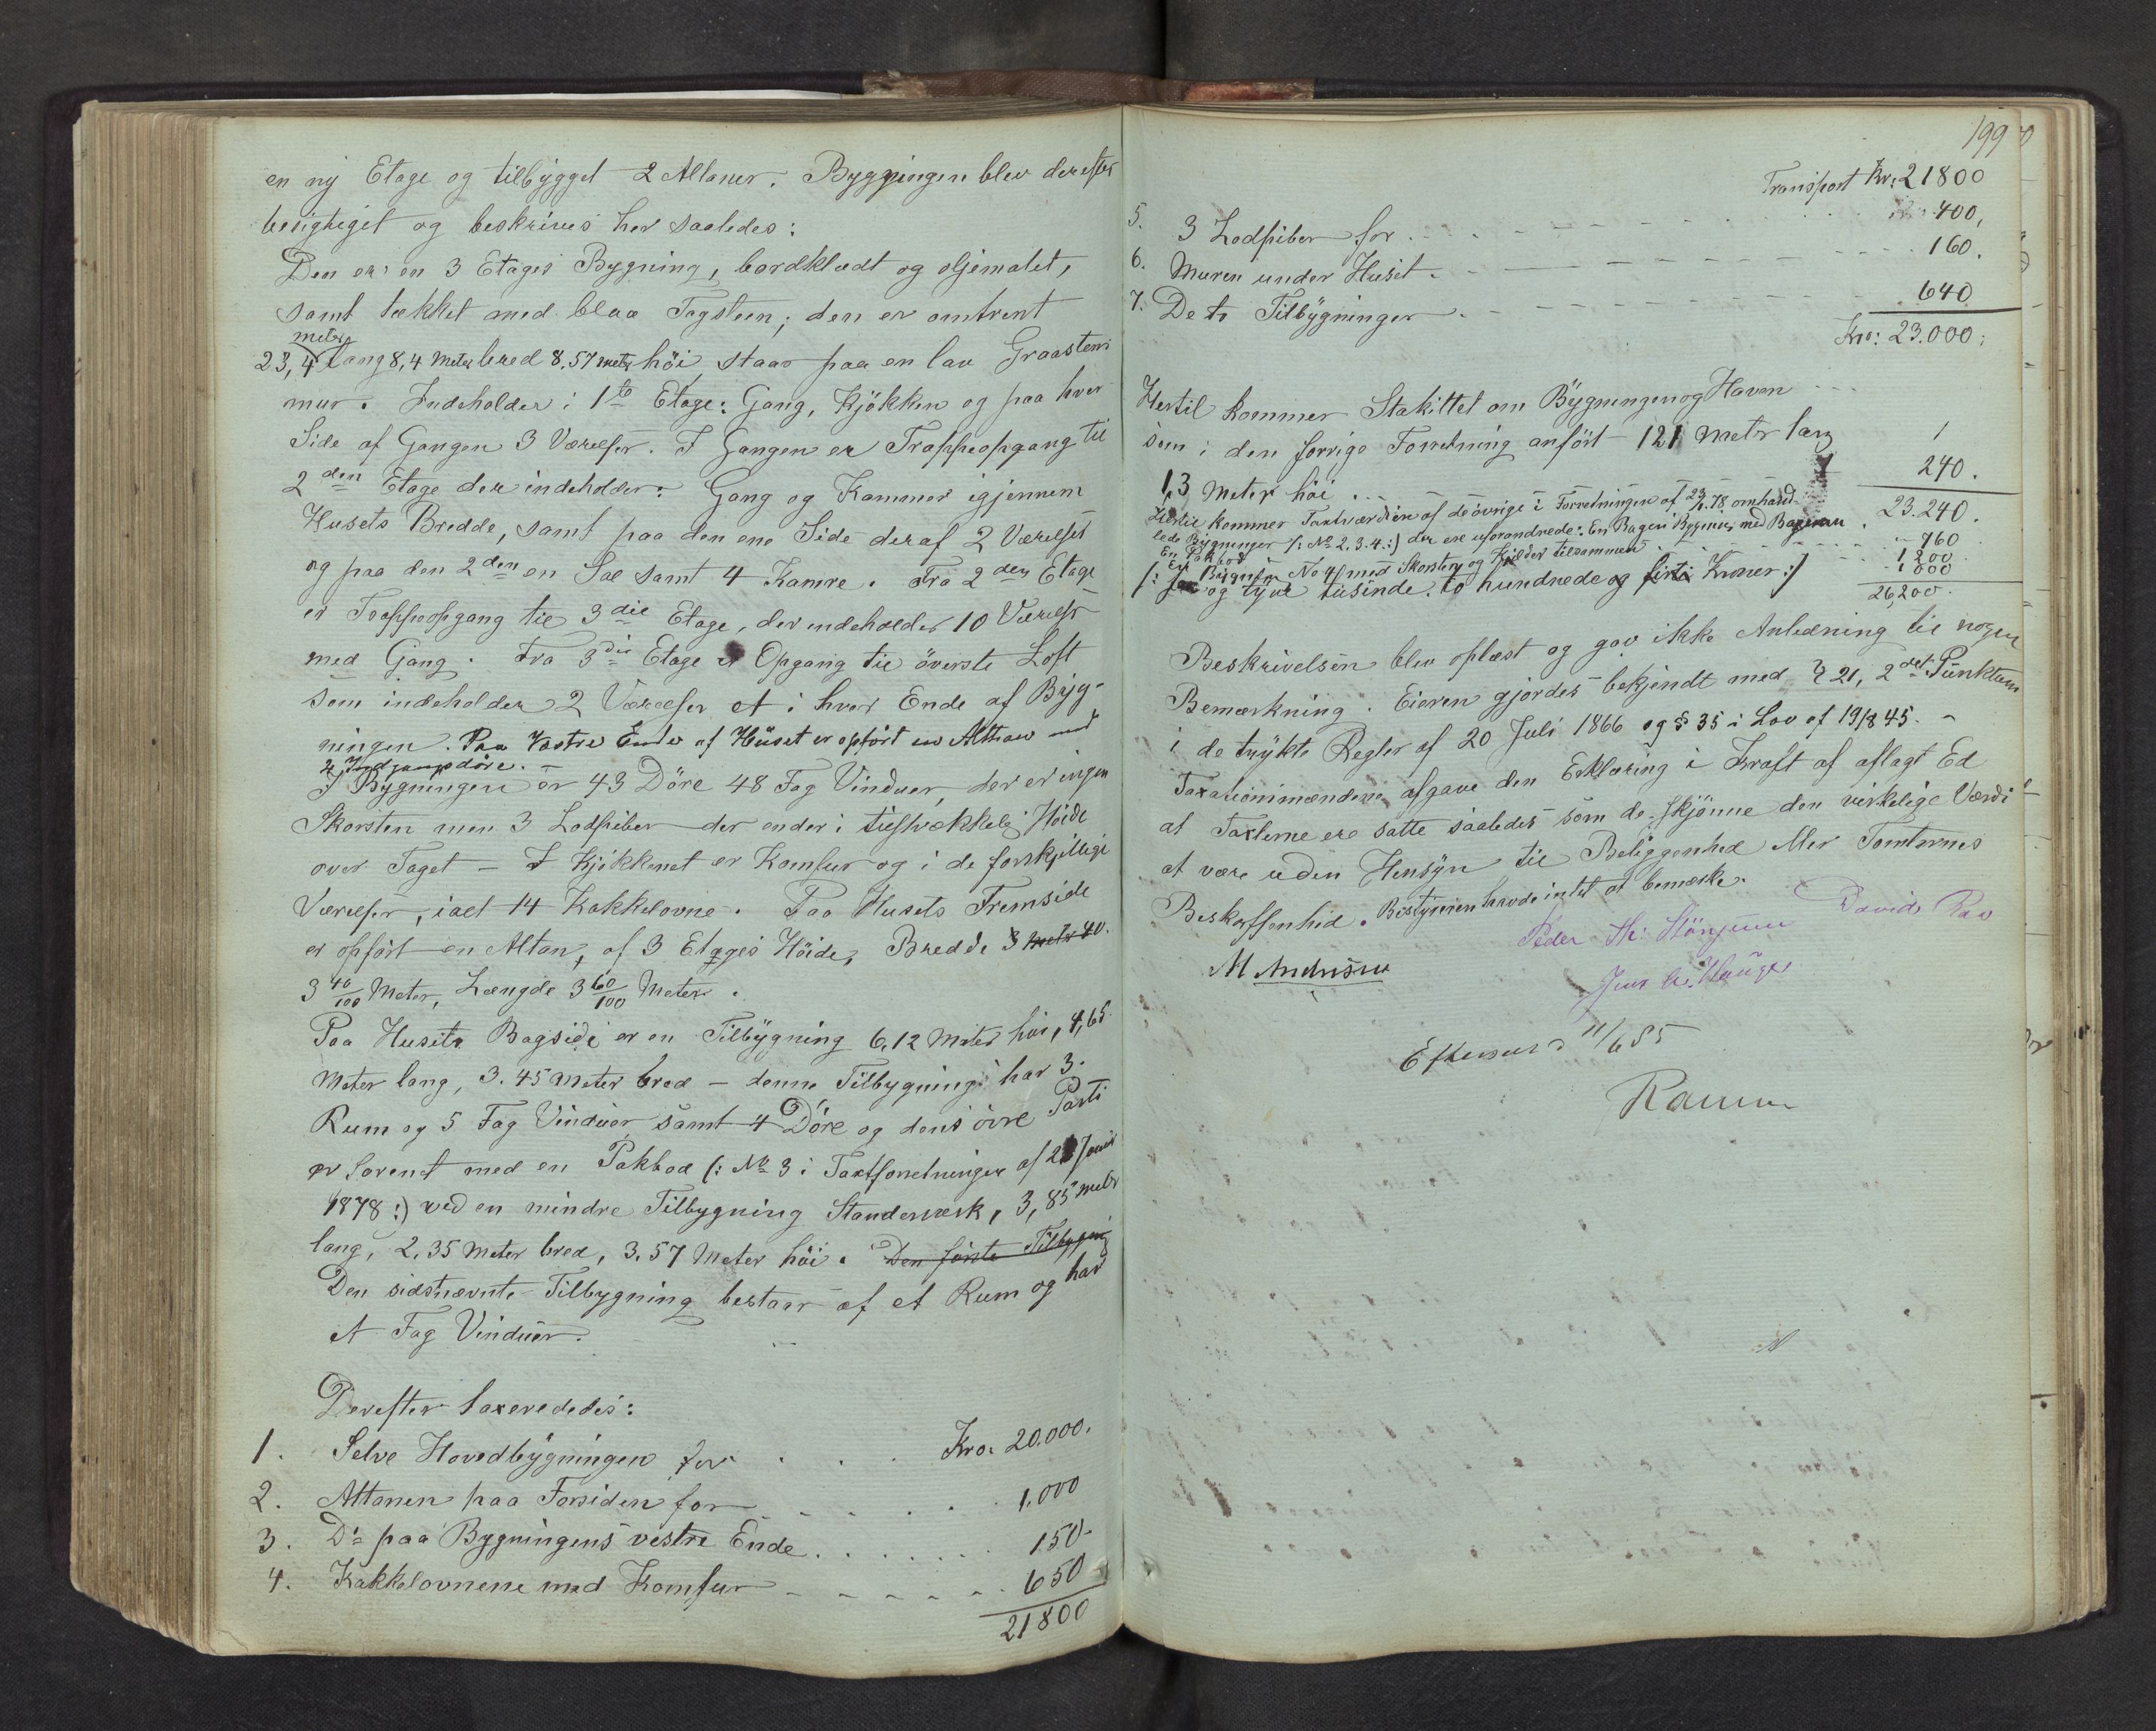 en ny Etage og tilbygget 2 Altaner. Bygningen blev derefter
besigtiget og beskrives her saaledes:
Den er en 3 Etages Bygning, bordklædt og oljemalet,
samt tækket med blaa Tagsteen; den er omtrent
meter
23,4 lang 8,4 Meter bred 8.57 meter höi, staar paa en lav Graastens
mur. Indeholder i 1ste Etage: Gang, Kjökken og paa hver
Side af Gangen 3 Værelser. I Gangen er Trappeopgang til
2den Etage der indeholder: Gang og Kammer igjennem
Husets Bredde, samt paa den ene Side deraf 2 Værelser
og paa den 2den en Sal samt 4 Kamre. Fra 2den Etage
er Trappeopgang til 3die Etage, der indeholder 10 Værelser
med Gang. Fra 3die Etage er Opgang til överste Loft
som indeholder 2 Værelser et i hver Ende af Byg-
ningen. Paa Vestre Ende af Huset er opfört en Althan med
2 Indgangsdöre. –
I Bygningen er 43 Döre 48 Fag Vinduer, der er ingen
Skorsten men 3 Lodpiber der ender i tilstrækkelig Höide
over Taget – I Kjökkenet er Komfur og i de forskjellige
Værelser, ialt 14 Kakkelovne. Paa Husets Fremside
er opfört en Altan, af 3 Etages Höide, Bredde 3 Meter 40.
3 40/100 Meter, Længde 3 60/100 Meter.
Paa Husets Bagside er en Tilbygning 6,12 Meter höi, 4,65
Meter lang, 3.45 Meter bred – denne Tilbygning har 3
Rum og 5 Fag Vinduer samt 4 Döre og dens övre Parti
er forenet med en Pakbod (: No 3 i Taxtforretningen af 2 Januar
1878 :) ved en mindre Tilbygning Standerverk, 3,85 meter
lang, 2,35 Meter bred, 3.57 Meter höi. Den förste Tilbygning
Den sidstnævnte Tilbygning bestaar af et Rum og har
et Fag Vinduer.
Derefter taxeredes:
1. Selve Hovedbygningen for . . . Kro. 20.000.
2. Altanen paa Forsiden for . . . 1.000
3. Do paa Bygningens vestre Ende . . . 150.
4. Kakkelovnene med Komfur . . . 650
21800
199
Transport Kr: 21800
5. 3 Lodpiber for . . . 400,
6. Muren under Huset . . . 160.
7. De to Tilbygninger . . . 640
Kro: 23.000.
Hertil kommer Stakittet om Bygningen og Haven
som i den forrige Forretning anfört – 121 Meter lang
1,3 Meter höi . . . 240.
23.240.
Hertil kommer Taxtværdien af de övrige i Forretningen af 23/1.78 omhand-
lede Bygninger (: No 2. 3. 4. :) der ere uforandrede: En Bageri Bygning med Bagerovn . 760
En Pakbod . . . 1200.
En Bygning No 4 med Skorsten og Kjelder tilsammen . . . 1000
/: og tyve tusinde to hundrede og firti Kroner :/
26,200.
Beskrivelsen blev oplæst og gav ikke Anledning til nogen
Bemærkning. Eieren gjordes bekjendt med § 21, 2det Punktum
i de trykte Regler af 20 Juli 1866 og § 35 i Lov af 19/8 45. –
Taxationsmændene afgave den Erklæring i Kraft af aflagt Ed
at Taxterne ere satte saaledes som de skjönne den virkelige Værdi
at være uden Hensyn til Beliggenhed eller Tomternes
Beskaffenhed. Bestyreren havde intet at bemærke.
M Andersen
David Rav
Jens A. Hauge
Efterseet 11/6 85